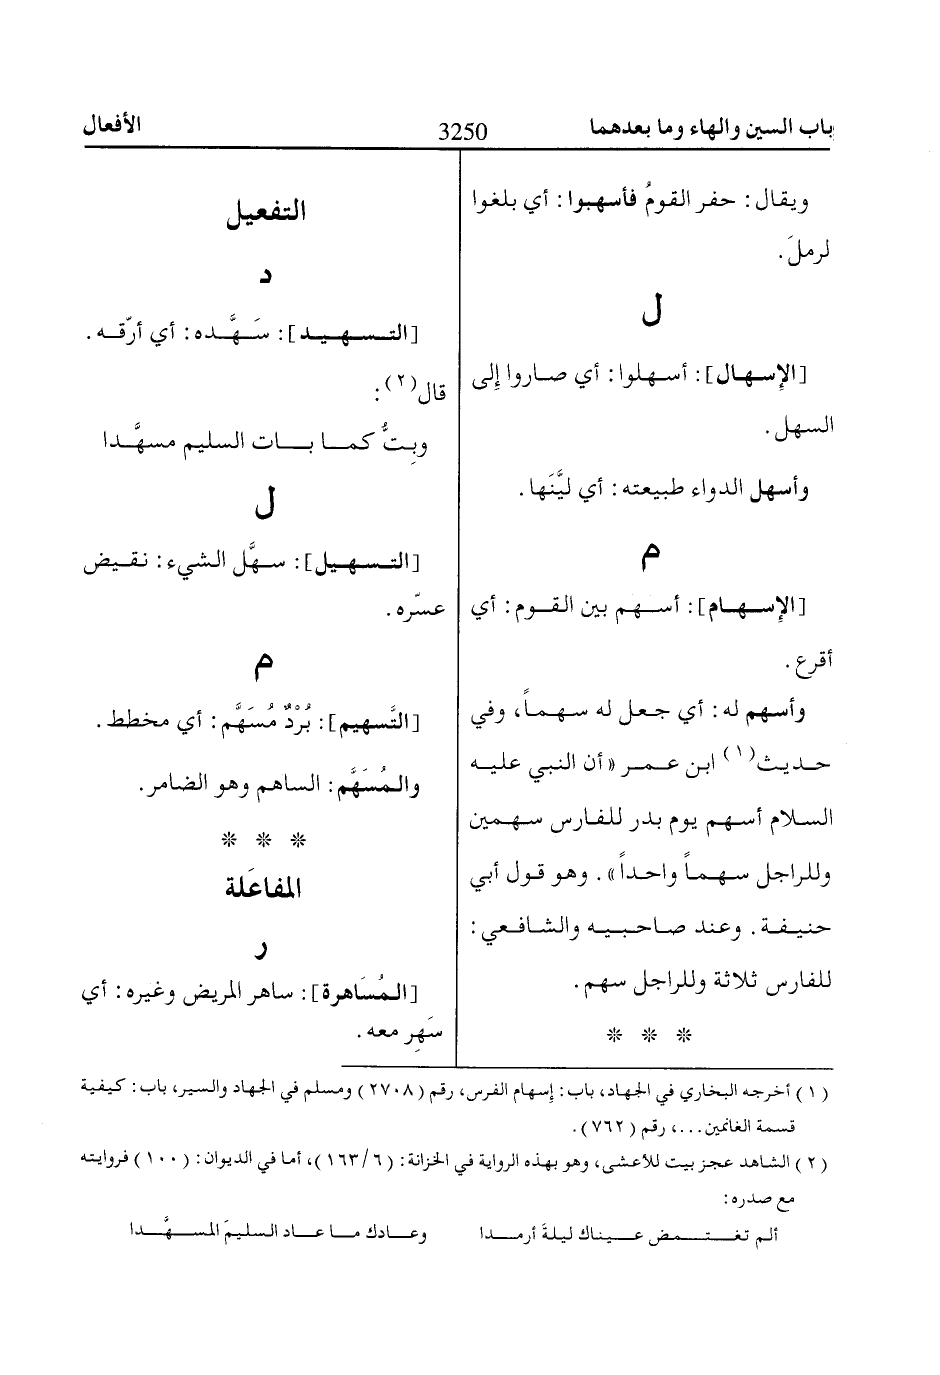 باب السين والهاء وما بعدهما
3250
الأفعال
ويقال : حفر القومُ فأسهبوا : أي بلغوا
لرملَ .
ل
[الإسهال] : أسهلوا : أي صاروا إلى
السهل .
وأسهل الدواء طبيعته : أي ليَّنَها .
م
[الإسهام] : أسهم بين القوم : أي
أقرع .
وأسهم له : أي جعل له سهماً، وفي
حديث(١) ابن عمر « أن النبي عليه
السلام أسهم يوم بدر للفارس سهمين
وللراجل سهماً واحداً» . وهو قول أبي
حنيفة . وعند صاحبيه والشافعي :
للفارس ثلاثة وللراجل سهم .
* * *
التفعيل
د
[التسهيد] : سَهَّده : أي أرّقه .
قال(٢) :
وبِتُّ كما بات السليم مسهَّدا
ل
[التسهيل] : سهَّل الشيء : نقيض
عسّره .
م
[التَّسهيم] : بُرْدٌ مُسَهَّم : أي مخطط .
والمُسَهَّم : الساهم وهو الضامر .
* * *
المفاعَلة
ر
[المُسَاهرة] : ساهر المريض وغيره : أي
سَهِر معه .
(١) أخرجه البخاري في الجهاد، باب : إسهام الفرس، رقم (٢٧٠٨) ومسلم في الجهاد والسير، باب : كيفية
قسمة الغانمين . . .، رقم (٧٦٢) .
(٢) الشاهد عجز بيت للأعشى، وهو بهذه الرواية في الخزانة : (١٦٣/٦)، أما في الديوان : (١٠٠) فروايته
مع صدره :
ألم تغتمض عيناك ليلةَ أرمدا وعادك ما عاد السليمَ المسهَّدا